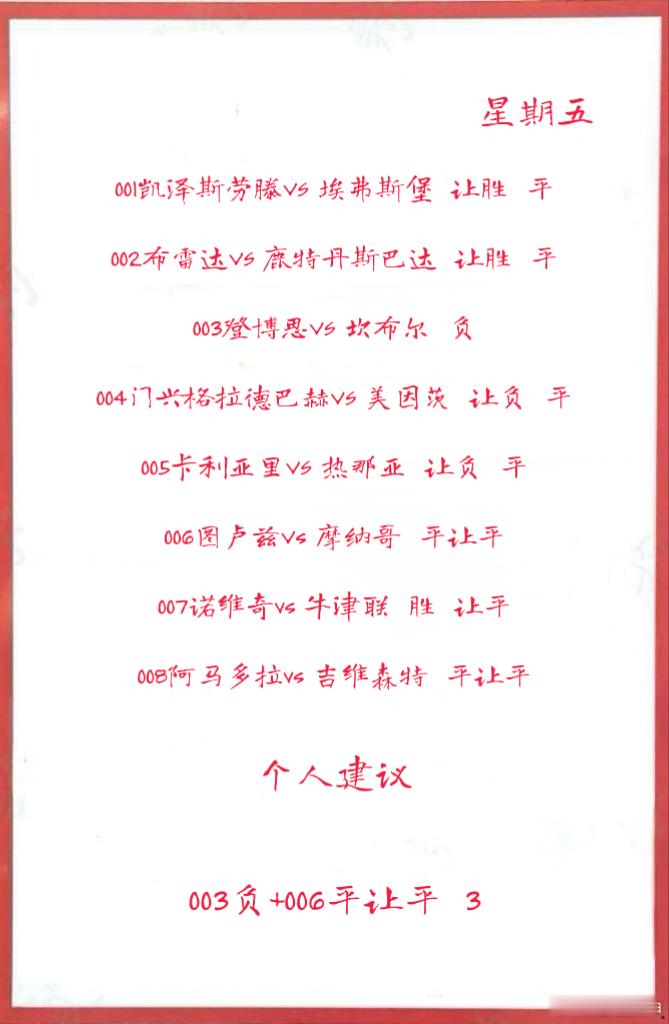 星期五
001凯泽斯劳滕vs 埃弗斯堡 让胜 平
002布雷达vs 鹿特丹斯巴达 让胜 平
003登博思vs 坎布尔 负
004门兴格拉德巴赫vs 美因茨 让负 平
005卡利亚里vs 热那亚 让负 平
006图卢兹vs 摩纳哥 平让平
007诺维奇vs 牛津联 胜 让平
008阿马多拉vs 吉维森特 平让平
个人建议
003负+006平让平 3